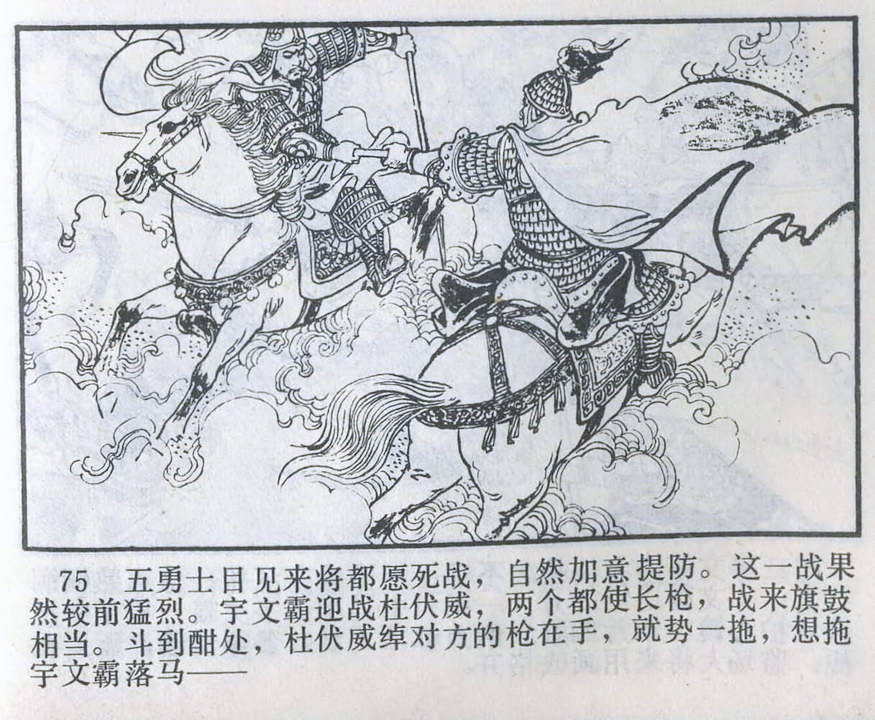 75 五勇士目见来将都愿死战，自然加意提防。这一战果
然较前猛烈。宇文霸迎战杜伏威，两个都使长枪，战来旗鼓
相当。斗到酣处，杜伏威绰对方的枪在手，就势一拖，想拖
宇文霸落马——